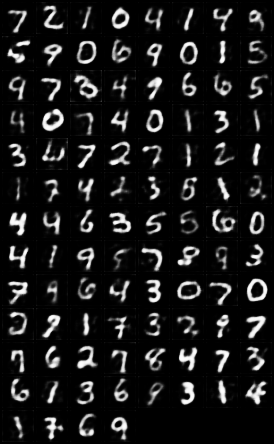 7 2 1 0 4 1 4 9
5 9 0 6 9 0 1 5
9 7 3 4 9 6 6 5
4 0 7 4 0 1 3 1
3 4 7 2 7 1 2 1
1 7 4 2 3 5 1 2
4 4 6 3 5 5 6 0
4 1 9 5 7 8 9 3
7 9 6 4 3 0 7 0
2 9 1 7 3 2 9 7
7 6 2 7 8 4 7 3
6 1 3 6 9 3 1 4
1 7 6 9